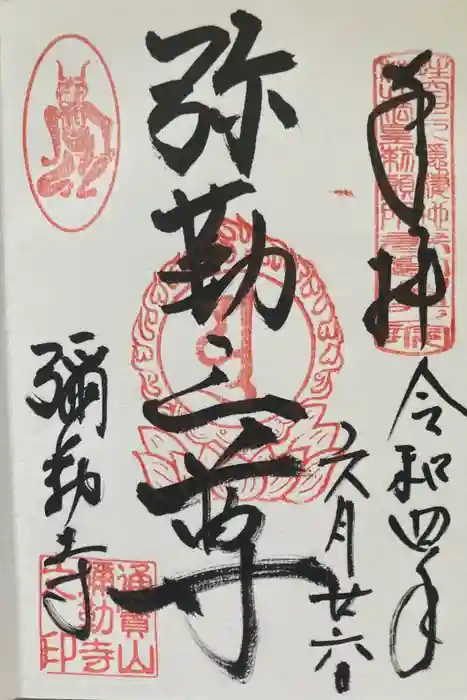 奉拝
令和四年
六月廿六日
弥勒三尊
彌勒寺
通寳山
彌勒寺
之印